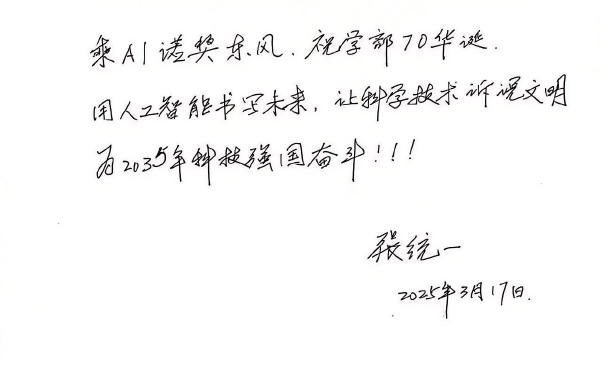 乘AI诺奖东风、祝学部70华诞.
用人工智能书写未来，让科学技术诉说文明
为2035年科技强国奋斗!!!
张统一
2025年3月17日.